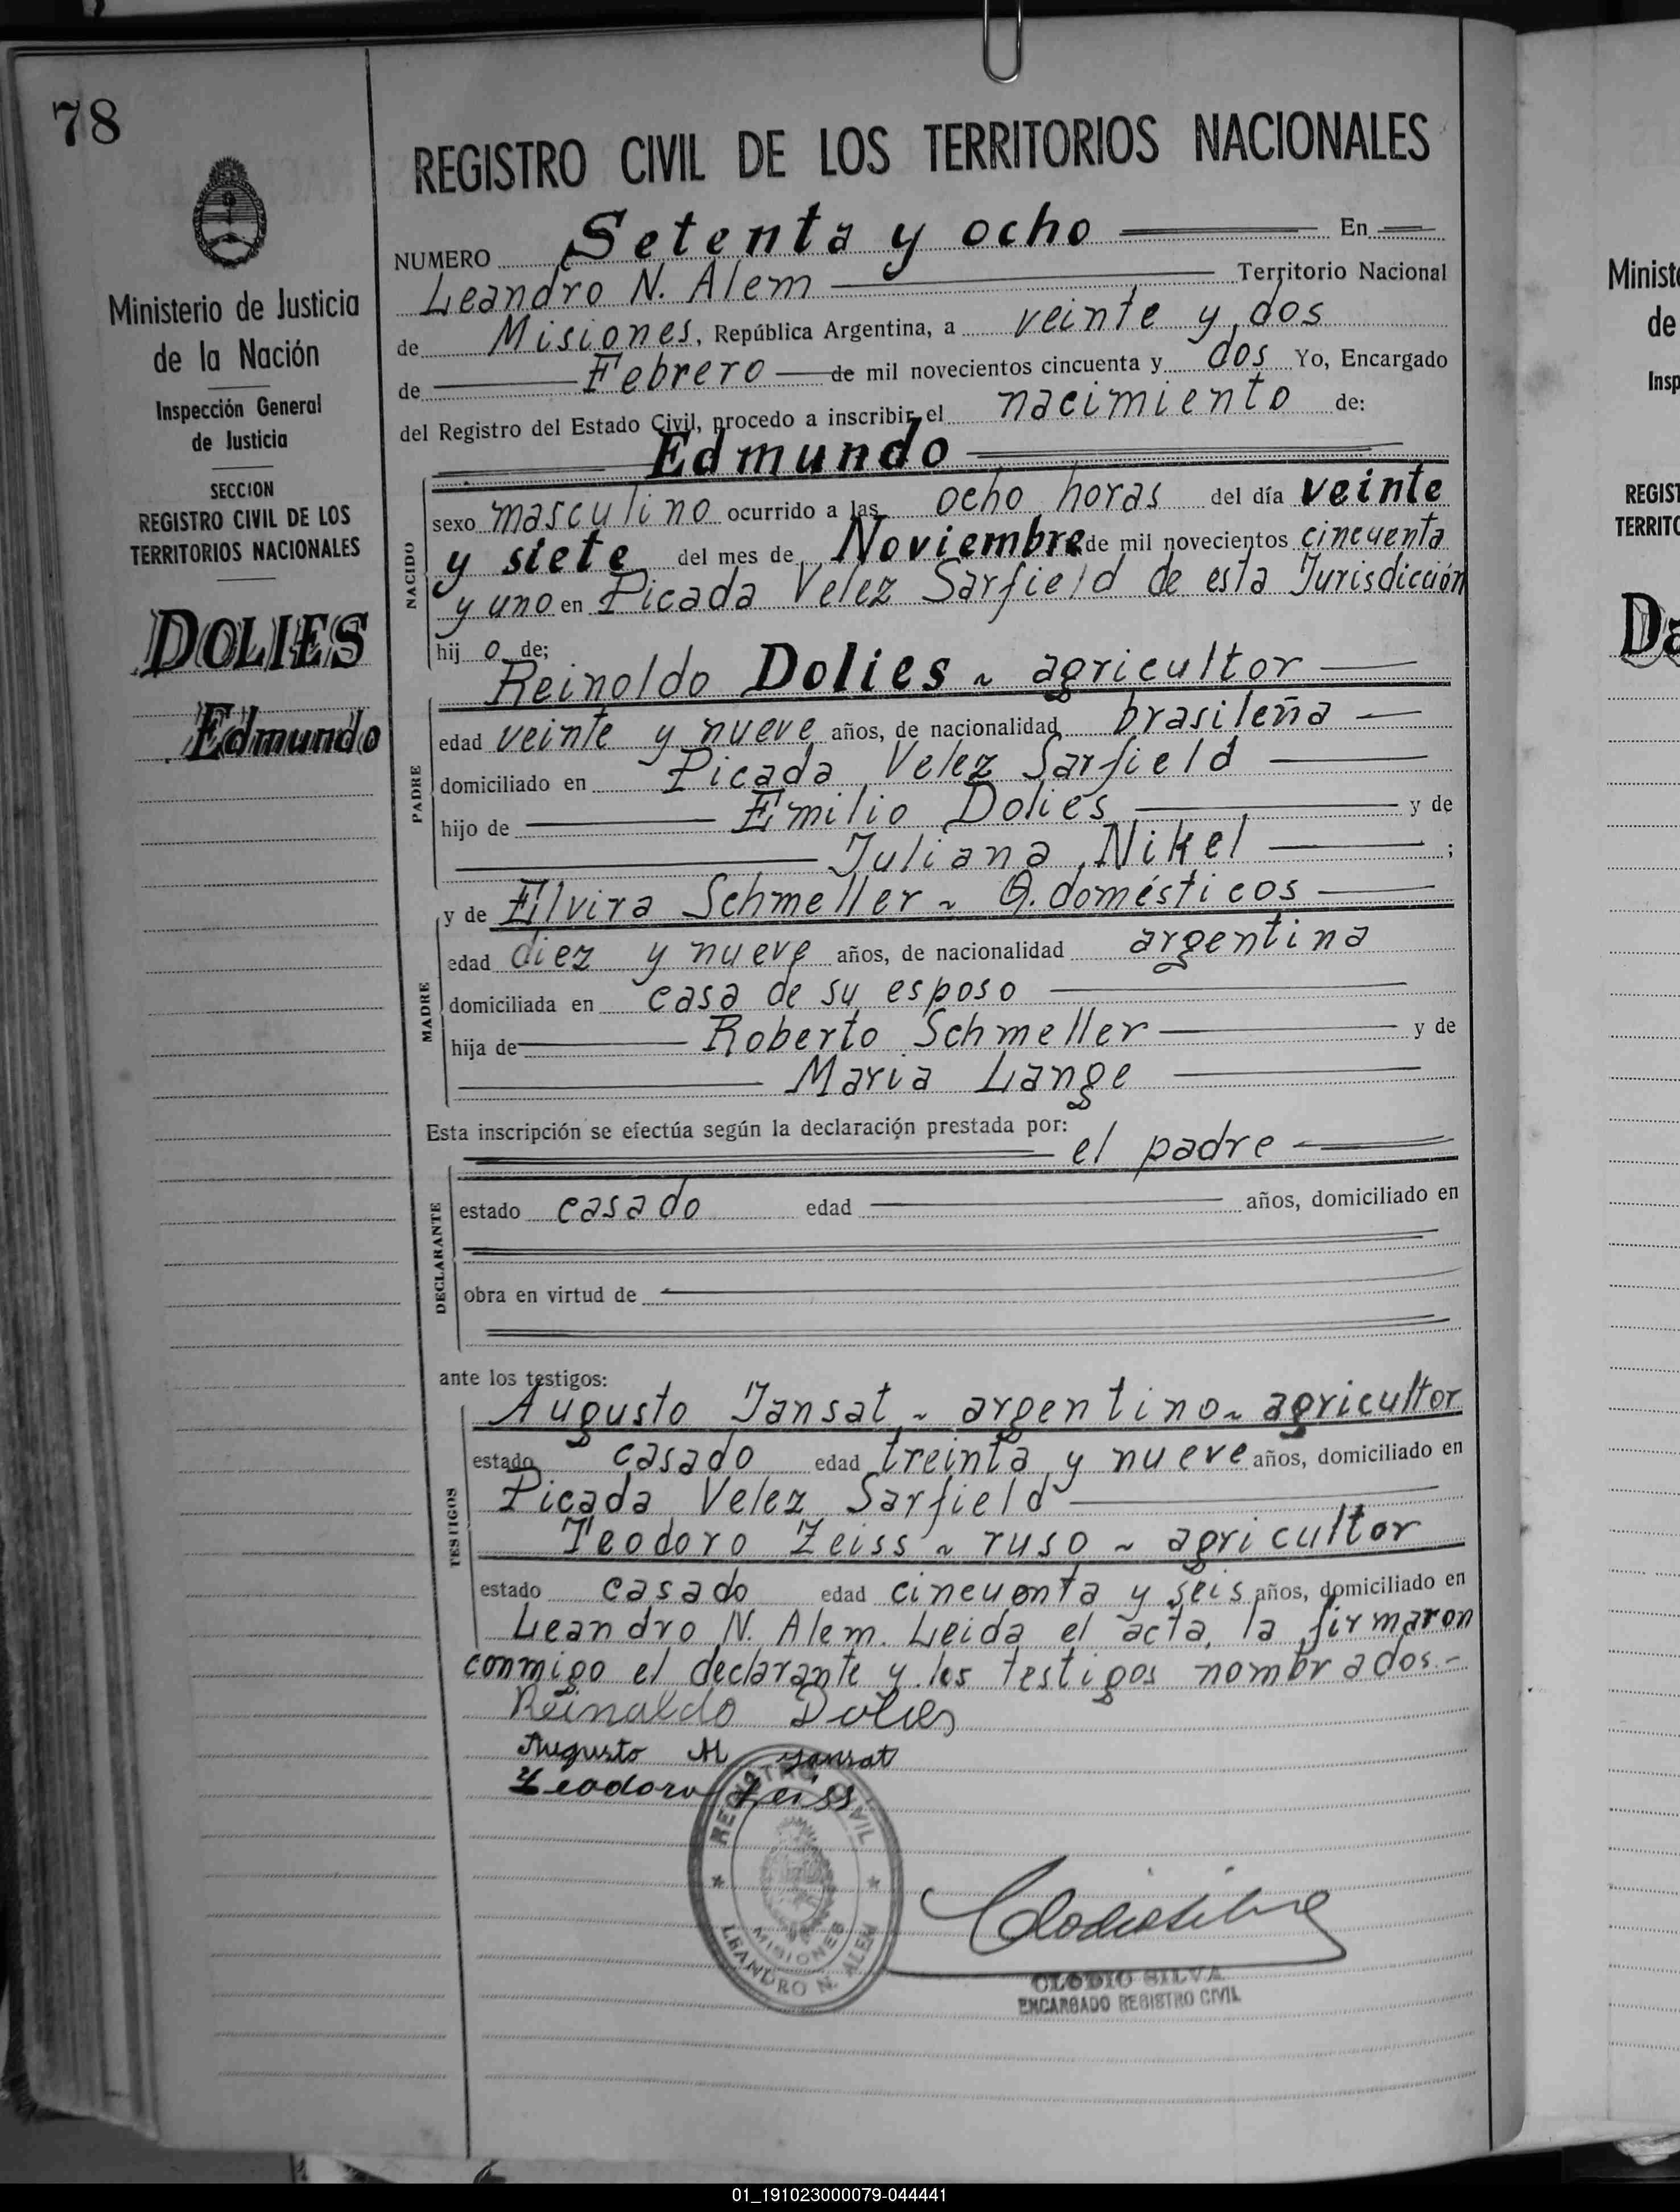 78
Ministerio de Justicia
de la Nación
Inspección General
de Justicia
SECCION
REGISTRO CIVIL DE LOS
TERRITORIOS NACIONALES
DOLIES
Edmundo
REGISTRO CIVIL DE LOS TERRITORIOS NACIONALES
NUMERO Setenta y ocho En
Leandro N. Alem Territorio Nacional
de Misiones, República Argentina, a veinte y dos
de Febrero de mil novecientos cincuenta y dos Yo, Encargado
del Registro del Estado Civil, procedo a inscribir el nacimiento de:
Edmundo
NACIDO
sexo masculino ocurrido a las ocho horas del día veinte
y siete del mes de Noviembre de mil novecientos cincuenta
y uno en Picada Velez Sarfield de esta Jurisdicción
hij o de;
Reinoldo Dolies ~ agricultor
PADRE
edad veinte y nueve años, de nacionalidad brasileña
domiciliado en Picada Velez Sarfield
hijo de Emilio Dolies y de
Juliana Nikel ;
y de Elvira Schmeller ~ Q. domésticos
MADRE
edad diez y nueve años, de nacionalidad argentina
domiciliada en casa de su esposo
hija de Roberto Schmeller y de
Maria Lange
Esta inscripción se efectúa según la declaración prestada por:
el padre
DECLARANTE
estado casado edad años, domiciliado en
obra en virtud de
ante los testigos:
Augusto Jansat ~ argentino ~ agricultor
TESTIGOS
estado casado edad treinta y nueve años, domiciliado en
Picada Velez Sarfield
Teodoro Zeiss ~ ruso ~ agricultor
estado casado edad cincuonta y seis años, domiciliado en
Leandro N. Alem. Leida el acta, la firmaron
conmigo el declarante y los testigos nombrados.-
Reinaldo Dolies
Augusto M Jansat
Teodoro Zeiss
REGISTRO CIVIL
MISIONES
LEANDRO N. ALEM
Clodiosilva
CLODIO SILVA
ENCARGADO REGISTRO CIVIL
Minist
de
Insp
REGIST
TERRITO
Da
01_191023000079-044441